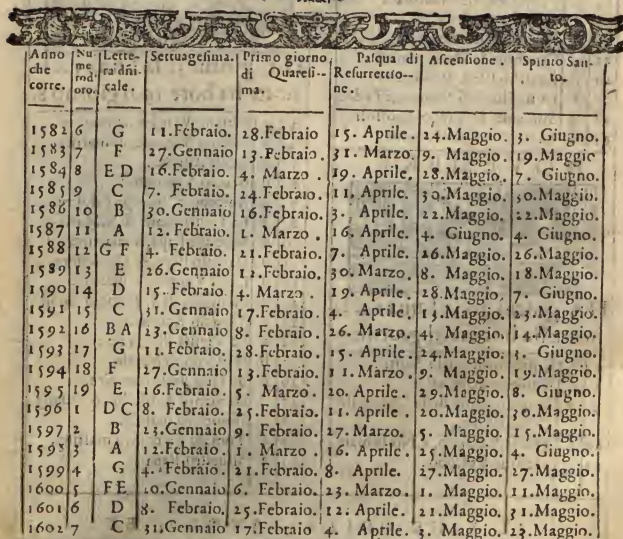 Anno che corre. Nu me rod' oro. Lettera dñicale. Settuagesima. Primo giorno di Quaresi--ma. Pasqua di Resurrettio--ne. Ascensione. Spirito Santo.
1582 6 G 11.Febraio. 28.Febraio 15. Aprile. 24.Maggio. 3. Giugno.
1583 7 F 27.Gennaio 13.Febraio. 31. Marzo. 9. Maggio. 19.Maggio
1584 8 E D 16.Febraio. 4. Marzo . 19. Aprile. 28.Maggio. 7. Giugno.
1585 9 C 7. Febraio. 24.Febraio. 11. Aprile. 30.Maggio. 30.Maggio.
1586 10 B 30.Gennaio 16.Febraio. 3. Aprile. 22.Maggio. 22.Maggio.
1587 11 A 12. Febraio. 1. Marzo . 16. Aprile. 4. Giugno. 4. Giugno.
1588 12 G F 4. Febraio. 21.Febraio. 7. Aprile. 26.Maggio. 26.Maggio.
1589 13 E 26.Gennaio 12.Febraio. 30. Marzo. 8. Maggio. 18.Maggio.
1590 14 D 15.Febraio. 4. Marzo . 19. Aprile. 28.Maggio. 7. Giugno.
1591 15 C 31.Gennaio 17.Febraio 4. Aprile. 13.Maggio. 23.Maggio.
1592 16 B A 23.Gennaio 8. Febraio. 26. Marzo. 4. Maggio. 14.Maggio.
1593 17 G 11.Febraio. 28.Febraio. 15. Aprile. 24.Maggio. 3. Giugno.
1594 18 F 27.Gennaio 13.Febraio. 11.Marzo. 9. Maggio. 19.Maggio.
1595 19 E 16.Febraio. 5. Marzo. 20. Aprile. 29.Maggio. 8. Giugno.
1596 1 D C 8. Febraio. 25.Febraio. 11. Aprile . 20.Maggio. 30.Maggio.
1597 2 B 23.Gennaio 9. Febraio. 27. Marzo. 5. Maggio. 15.Maggio.
1598 3 A 12.Febraio. 1. Marzo . 16. Aprile. 25.Maggio. 4. Giugno.
1599 4 G 4. Febraio. 21.Febraio. 8. Aprile. 27.Maggio. 27.Maggio.
1600 5 F E 20.Gennaio 6. Febraio. 23. Marzo. 1. Maggio. 11.Maggio.
1601 6 D 8. Febraio. 25.Febraio. 12. Aprile. 21.Maggio. 31.Maggio.
1602 7 C 31.Gennaio 17.Febraio 4. Aprile. 3. Maggio. 23.Maggio.